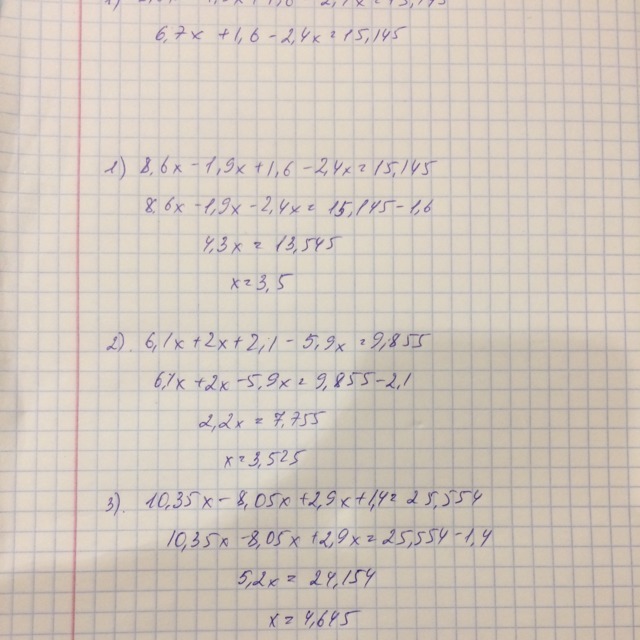 6,7x + 1,6 - 2,4x = 15,145
1) 8,6x - 1,9x + 1,6 - 2,4x = 15,145
8,6x - 1,9x - 2,4x = 15,145 - 1,6
4,3x = 13,545
x = 3,5
2). 6,1x + 2x + 2,1 - 5,9x = 9,855
6,1x + 2x - 5,9x = 9,855 - 2,1
2,2x = 7,755
x = 3,525
3). 10,35x - 8,05x + 2,9x + 1,4 = 25,554
10,35x - 8,05x + 2,9x = 25,554 - 1,4
5,2x = 24,154
x = 4,645